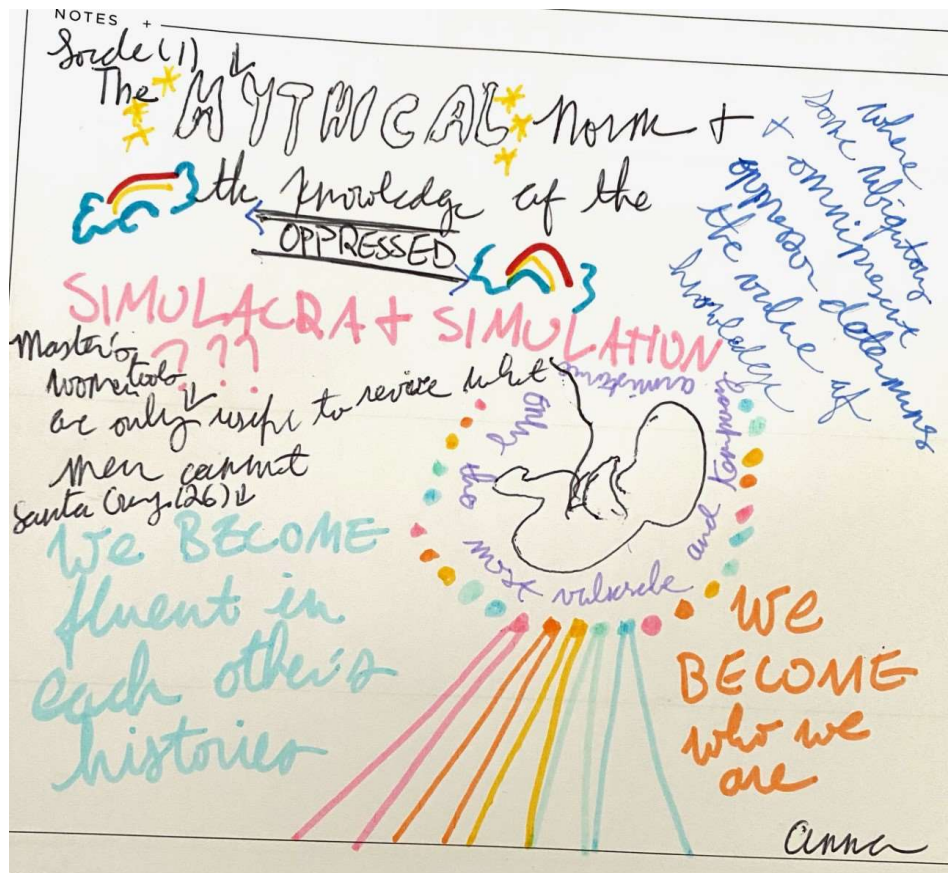 NOTES +
Lorde (1) ↓
The MYTHICAL norm +
the knowledge of the
OPPRESSED
where
some ubiquitous
+ omnipresent
oppressor determines
the value of
knowledge
SIMULACRA + SIMULATION
???
Master's
women tools
are only useful to revise what
men cannot
Santa Cruz (26) ↓
We BECOME
fluent in
each other's
histories
only the most valuable and
We
BECOME
who we
are
anna